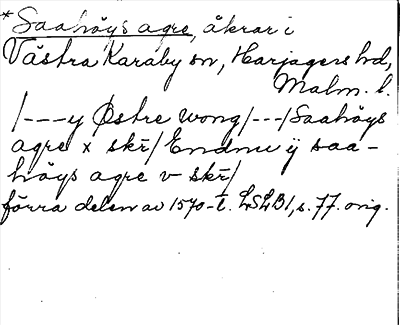 *Saahöys agre, åkrar i
Västra Karaby sn, Harjagers hd,
Malm. l.
/---y Østre wong/---/Saahöys
agre x skr̄/ Endnu ÿ saa-
höys agre v skr̄/
förra delen av 1570-t. LSLB1, s. 77. orig.